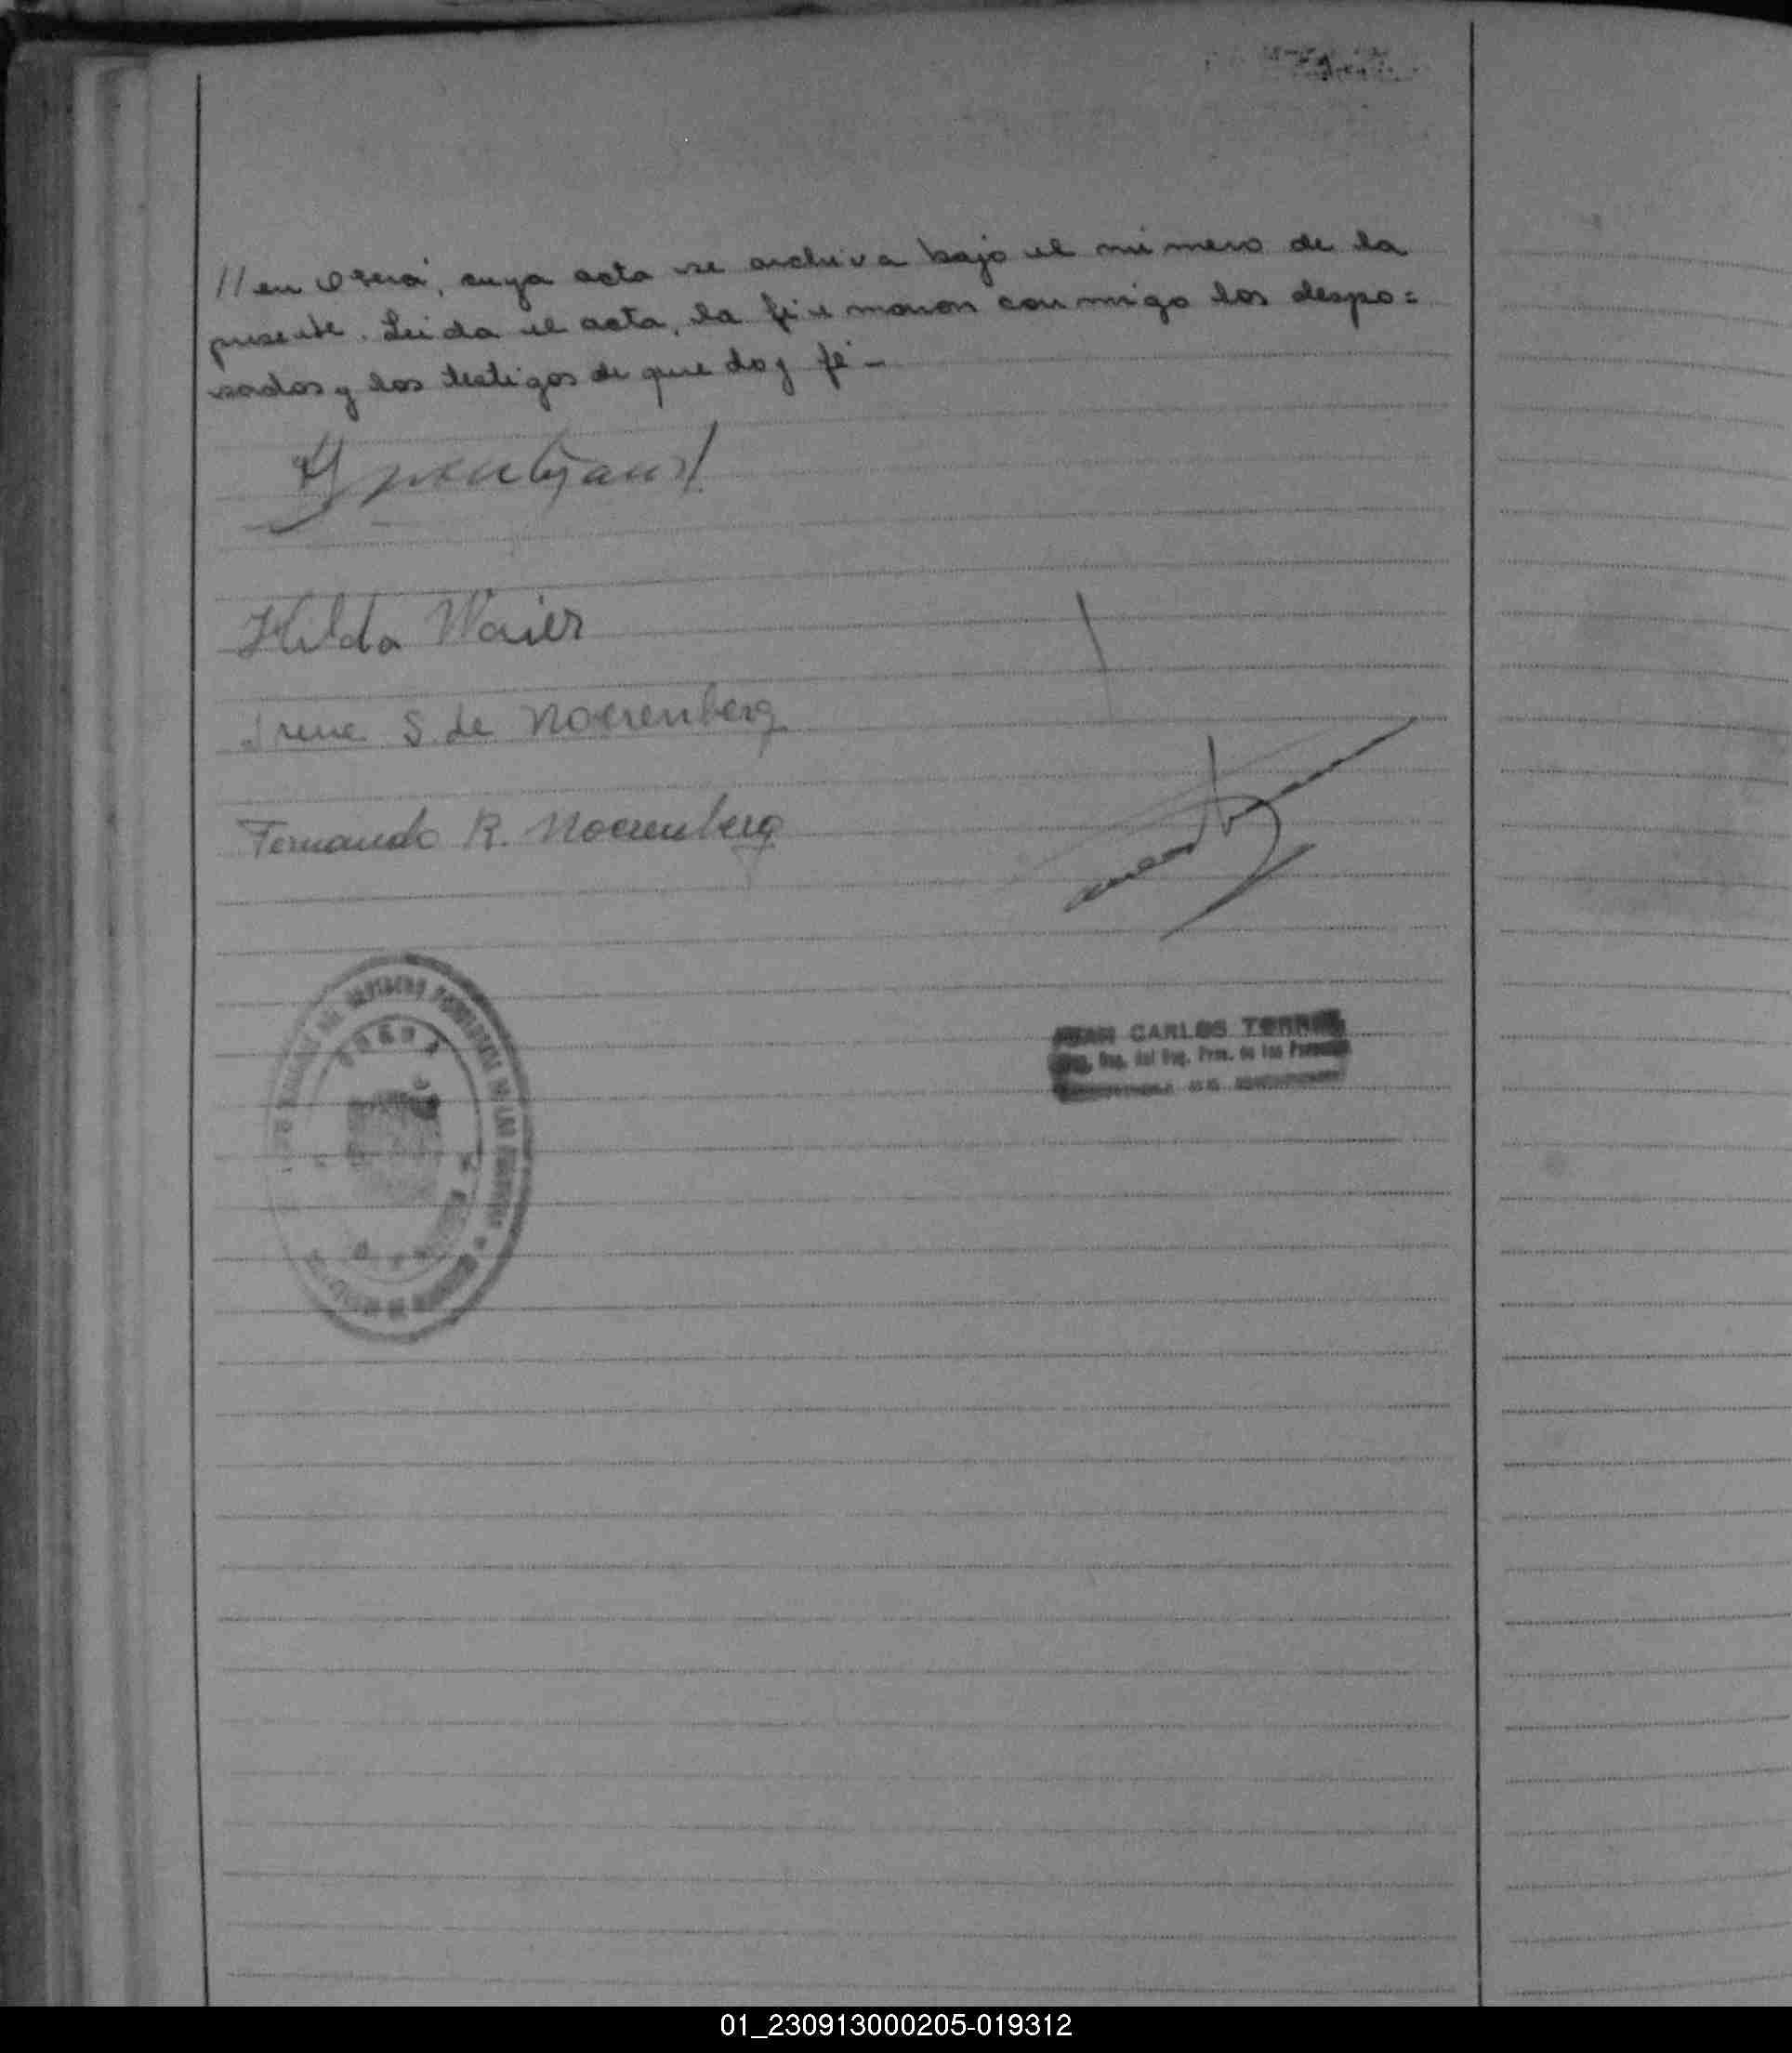 // en Oberá, cuya acta se archiva bajo el número de la
presente. Leida el acta, la firmaron conmigo los despo=
sados y los testigos de que doy fé -
Hilda Maier
Irene S. de Noerenberg
Fernando R. Noerenberg
OBERA
JUAN CARLOS TORRES
del Reg. Prov. de las Personas
01_230913000205-019312